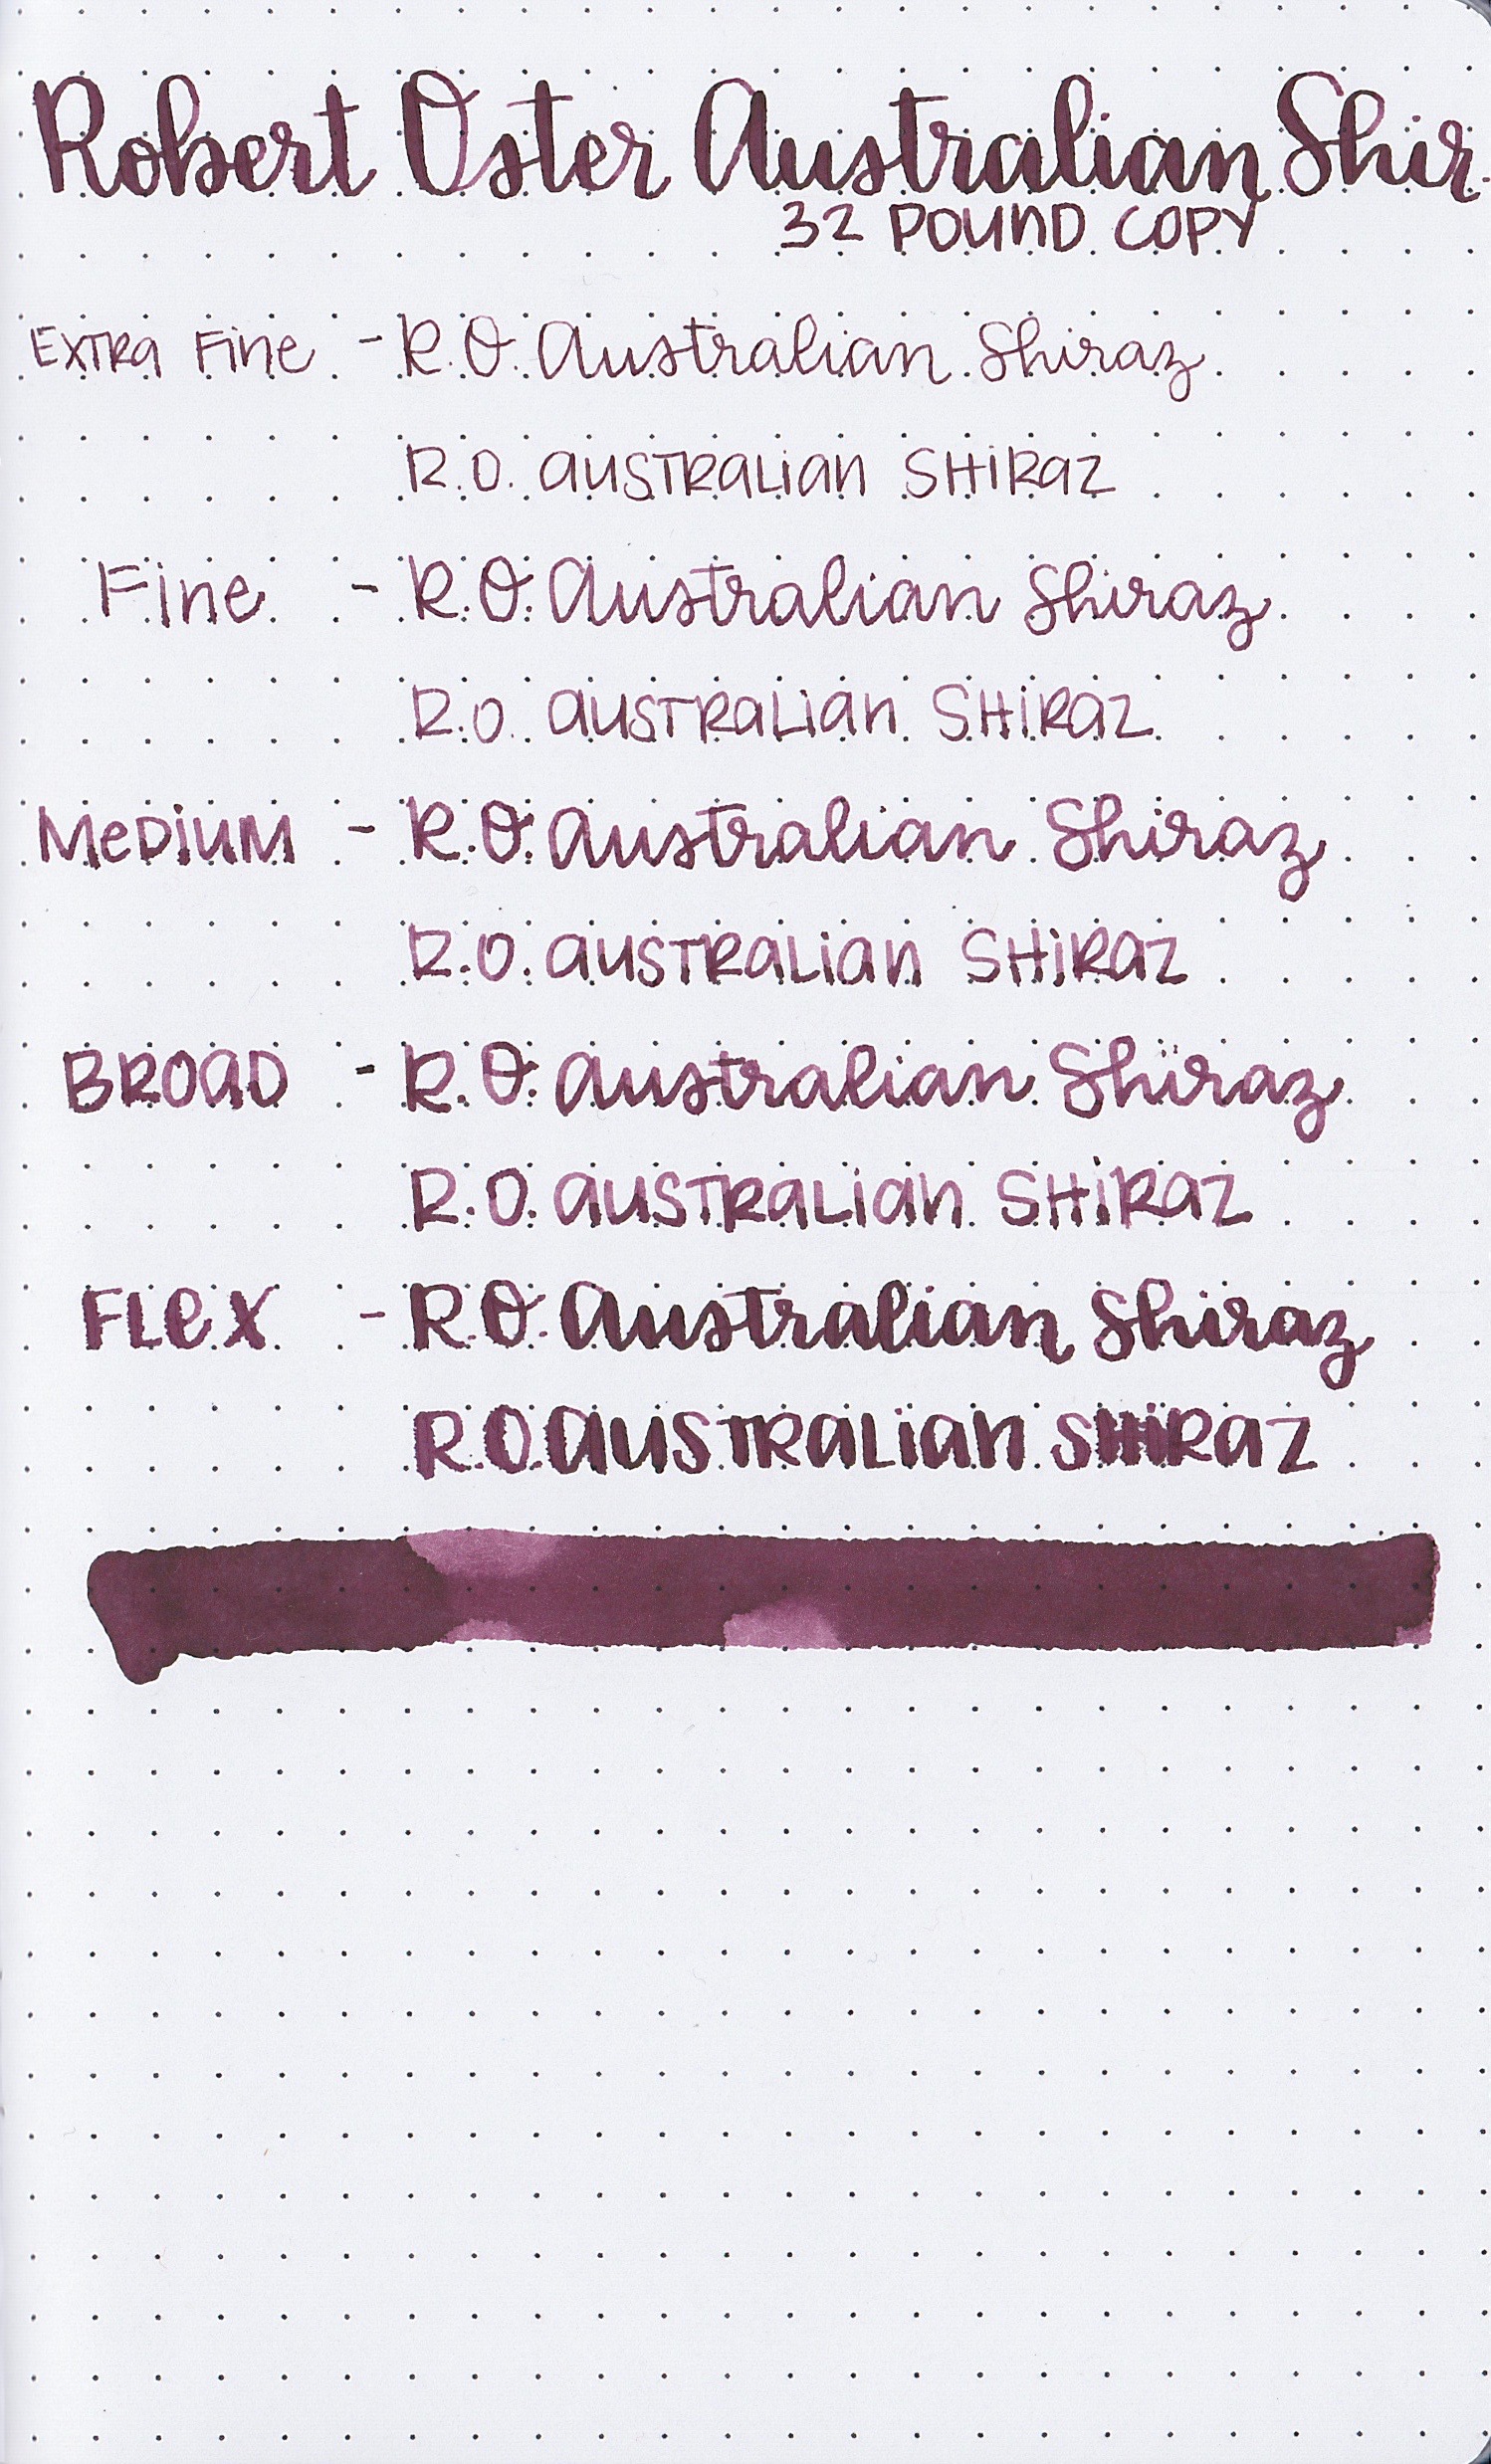 Robert Oster Australian Shir
32 POUND COPY
EXTRA Fine - R.O. Australian Shiraz
R.O. AUSTRALiAn SHiRAZ
Fine - R.O. Australian Shiraz
R.O. AUSTRALiAn SHiRAZ
MeDiUM - R.O. Australian Shiraz
R.O. AUSTRALiAn SHiRAZ
BROAD - R.O. Australian Shiraz
R.O. AUSTRALiAn SHiRAZ
FLeX - R.O. Australian Shiraz
R.O. AUSTRALiAn SHiRAZ